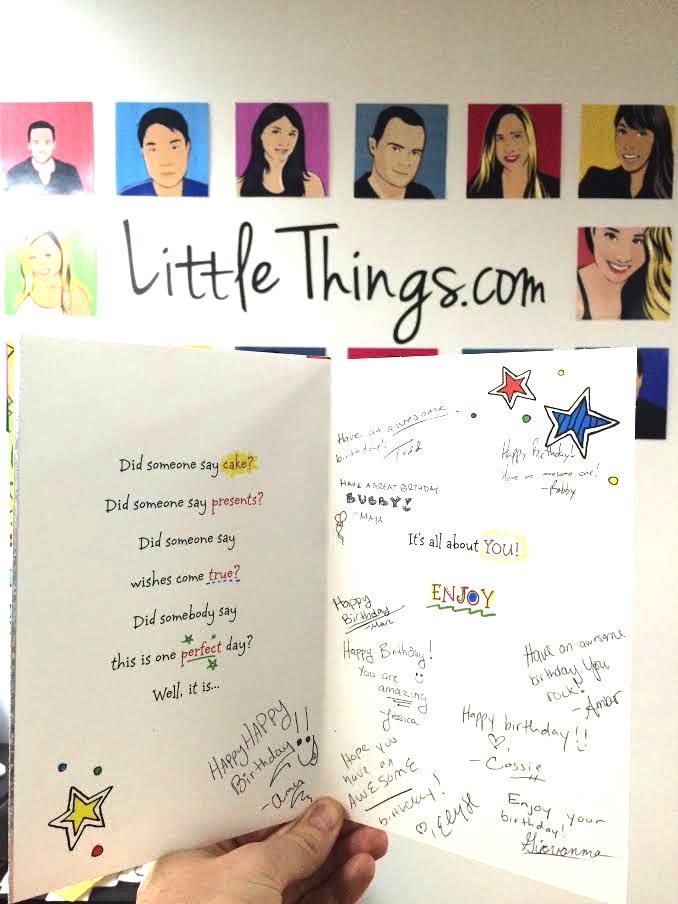 LittleThings.com
Did someone say cake?
Did someone say presents?
Did someone say
wishes come true?
Did somebody say
this is one perfect day?
Well, it is...
HAPPY HAPPY
Birthday!!
Have an awesome
birthday!
Todd
Happy Birthday!
Have an awesome one!
-Robby
HAVE A GREAT BIRTHDAY
BUBBY!
-MAYA
It's all about YOU!
ENJOY
Happy
Birthday
Happy Birthday!
You are
amazing
Jessica
Have an awesome
birthday. You
rock!
-Amber
Happy birthday!!
-Cassie
Hope you
have an
AWESOME
birthday!
Elyse
Enjoy your
birthday!
Giovanna